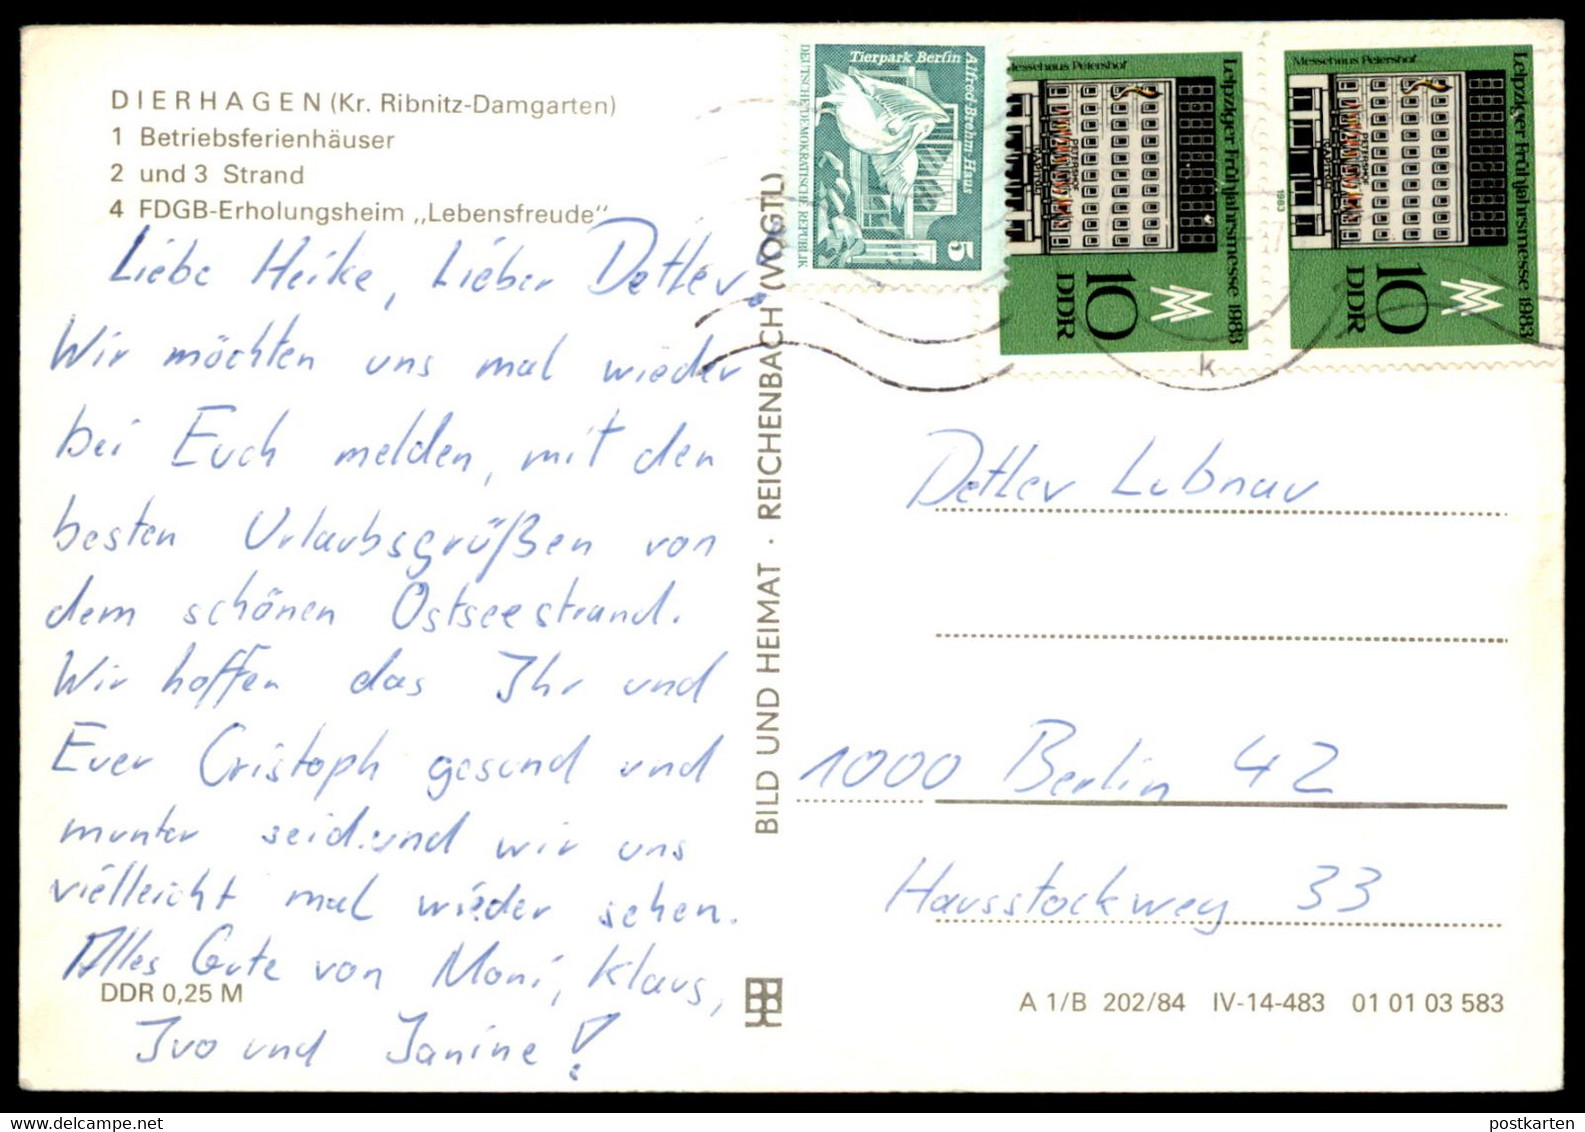 DIERHAGEN (Kr. Ribnitz-Damgarten)
1 Betriebsferienhäuser
2 und 3 Strand
4 FDGB-Erholungsheim „Lebensfreude"
Liebe Heike, Lieber Detlev!
Wir möchten uns mal wieder
bei Euch melden, mit den
besten Urlaubsgrüßen von
dem schönen Ostseestrand.
Wir hoffen das Ihr und
Euer Cristoph gesund und
munter seid.und wir uns
vielleicht mal wieder sehen.
Alles Gute von Moni, Klaus,
Ivo und Janine!
DDR 0,25 M
BILD UND HEIMAT · REICHENBACH (VOGTL)
Tierpark Berlin
Alfred-Brehm-Haus
DEUTSCHE DEMOKRATISCHE REPUBLIK
5
Messehaus Petershof
Leipziger Frühjahrsmesse 1983
PETERSHOF
10
DDR
1983
Messehaus Petershof
Leipziger Frühjahrsmesse 1983
PETERSHOF
10
DDR
k
Detlev Lubnau
1000 Berlin 42
Hausstockweg 33
A 1/B 202/84 IV-14-483 01 01 03 583
postkarten